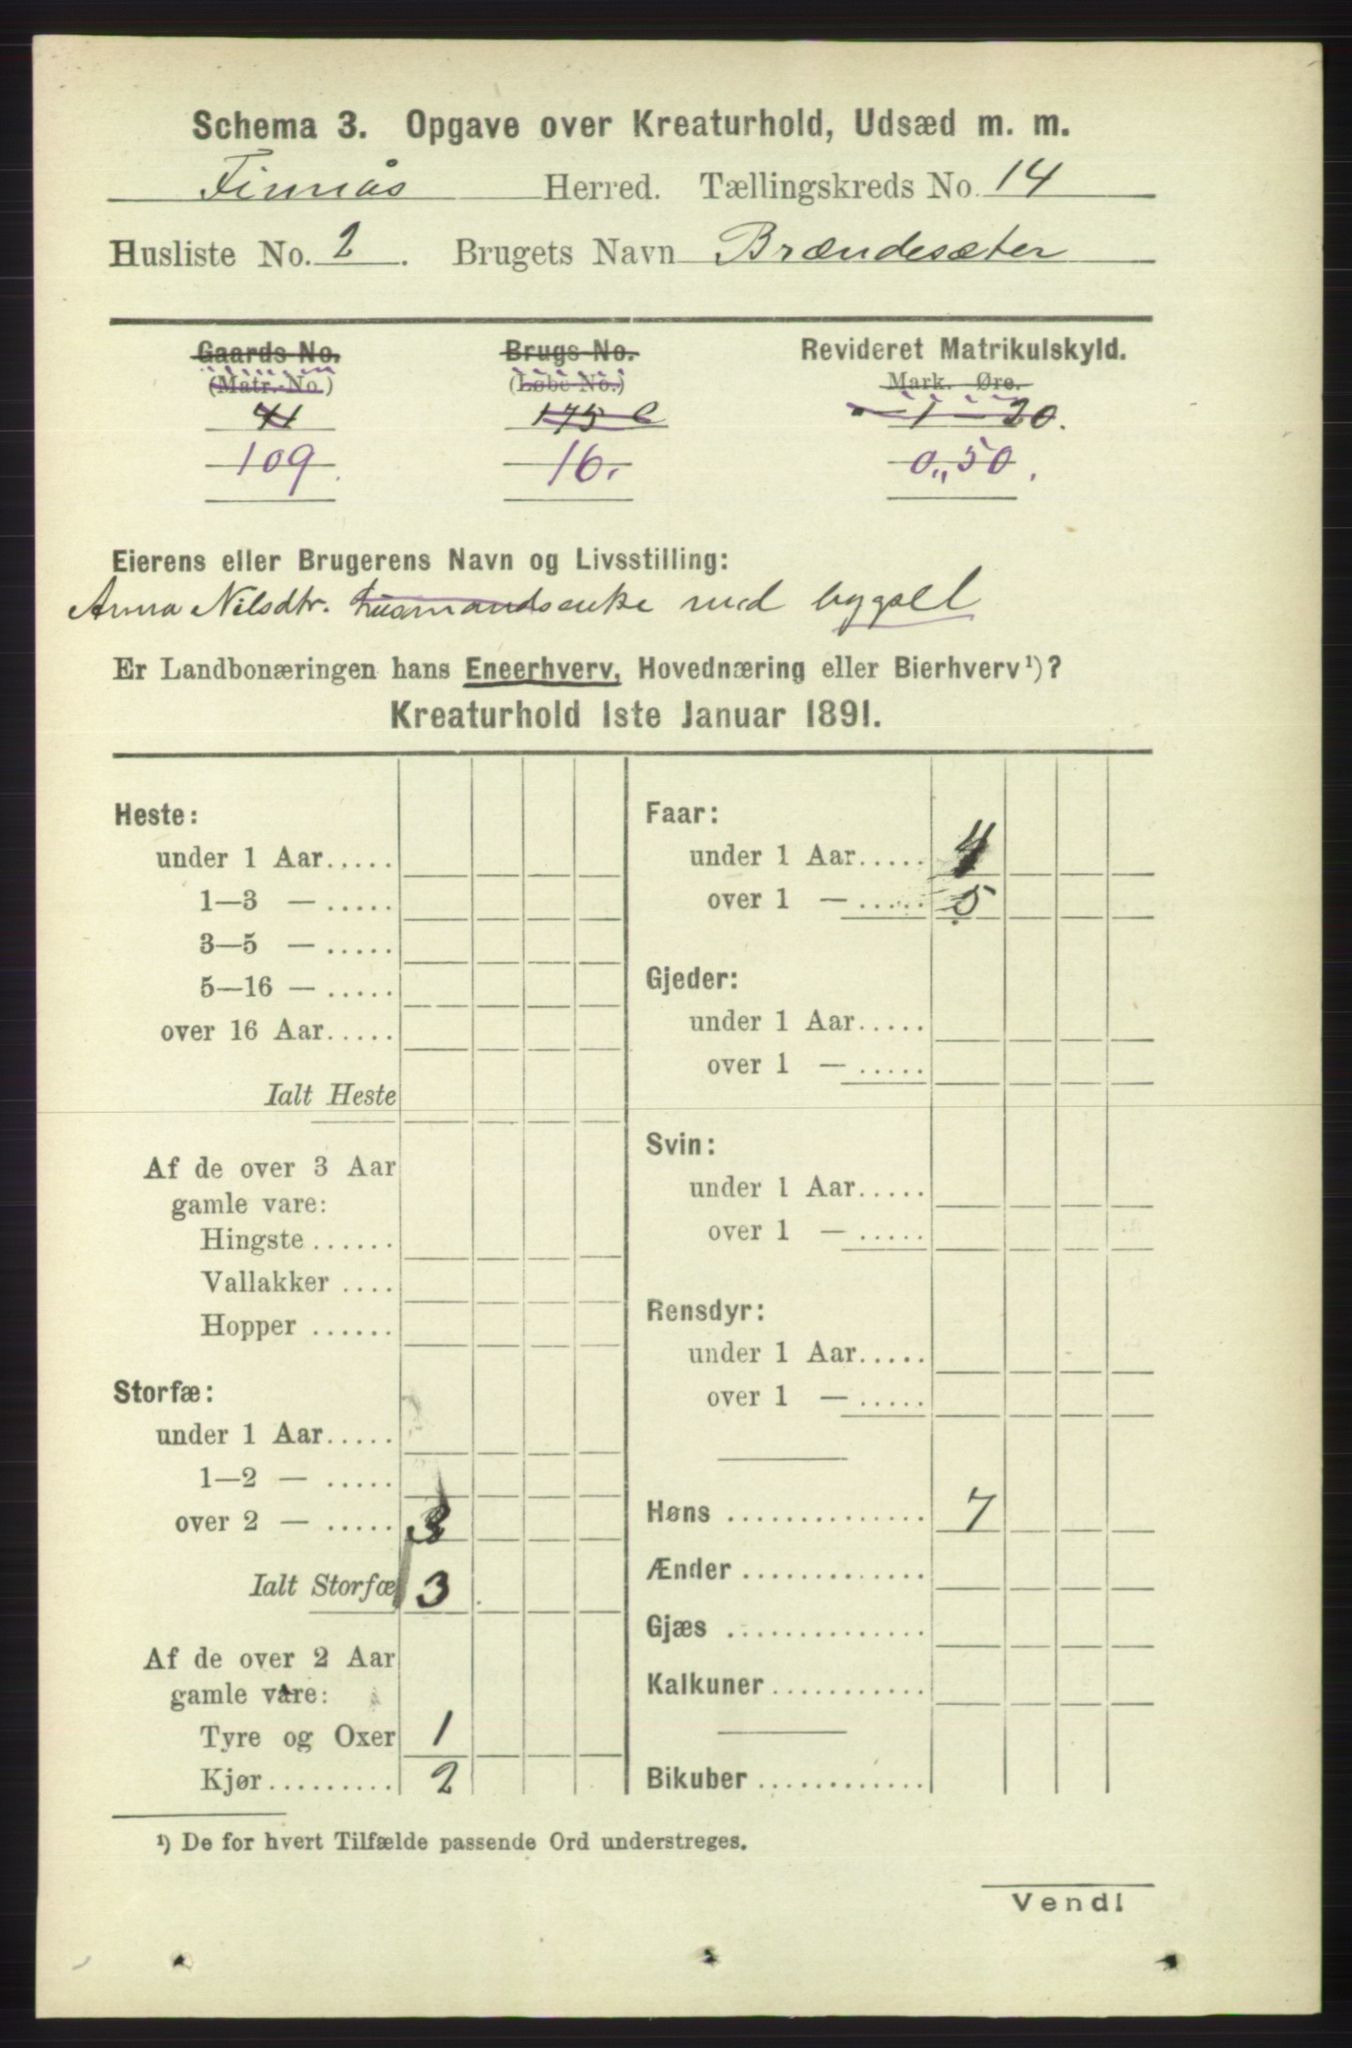 Schema 3. Opgave over Kreaturhold, Udsæd m. m.
Finnås Herred. Tællingskreds No. 14
Husliste No. 2. Brugets Navn Brændesæter
Gaards No. Brugs No. Revideret Matrikulskyld.
(Matr. No.) (Løbe No.) Mark. Øre.
41 175 1 - 20.
109. 16. 0,,50.
Eierens eller Brugerens Navn og Livsstilling:
Anna Nilsdtr. husmandsenke med bygsel
Er Landbonæringen hans Eneerhverv, Hovednæring eller Bierhverv¹)?
Kreaturhold 1ste Januar 1891.
Heste:
under 1 Aar.....
1—3 — .....
3—5 — .....
5—16 — .....
over 16 Aar.....
Ialt Heste
Af de over 3 Aar
gamle vare:
Hingste ......
Vallakker ....
Hopper ......
Storfæ:
under 1 Aar.....
1—2 — .....
over 2 — ..... 3
Ialt Storfæ 3
Af de over 2 Aar
gamle vare:
Tyre og Oxer 1
Kjør......... 2
Faar:
under 1 Aar..... 4
over 1 — ..... 5
Gjeder:
under 1 Aar.....
over 1 — .....
Svin:
under 1 Aar.....
over 1 — .....
Rensdyr:
under 1 Aar.....
over 1 — .....
Høns .............. 7
Ænder .............
Gjæs ..............
Kalkuner...........
Bikuber ............
¹) De for hvert Tilfælde passende Ord understreges.
Vend!